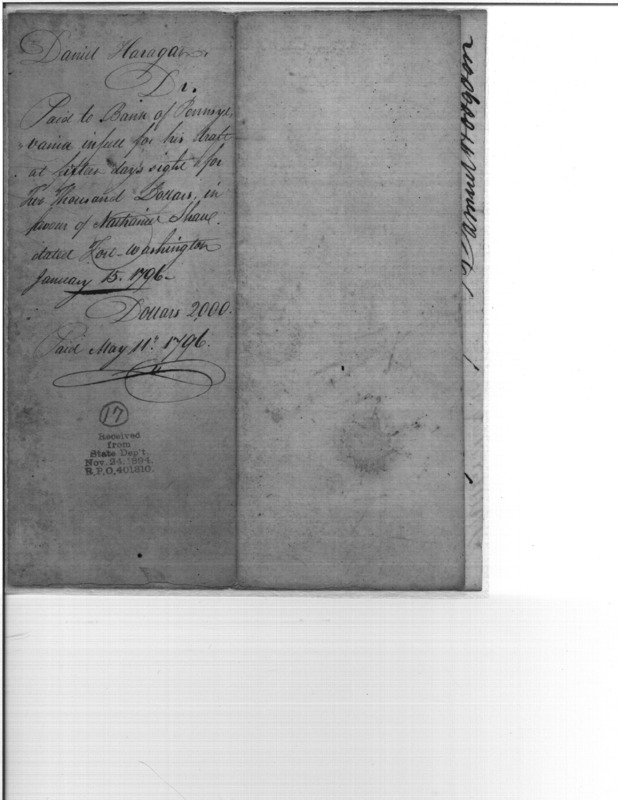 Daniel
Dr.
Paid to Bank of Pennsyl,
vania in full for his draft
at fifteen days sight for
Two Thousand Dollars, in
favour of Nathaniel Shane.
dated Fort-Washington
January 15. 1796
Dollars 2,000.
Paid May 11th 1796.
17
Received
from
State Dep't.
Nov. 24, 1894.
R.P.O. 401810.